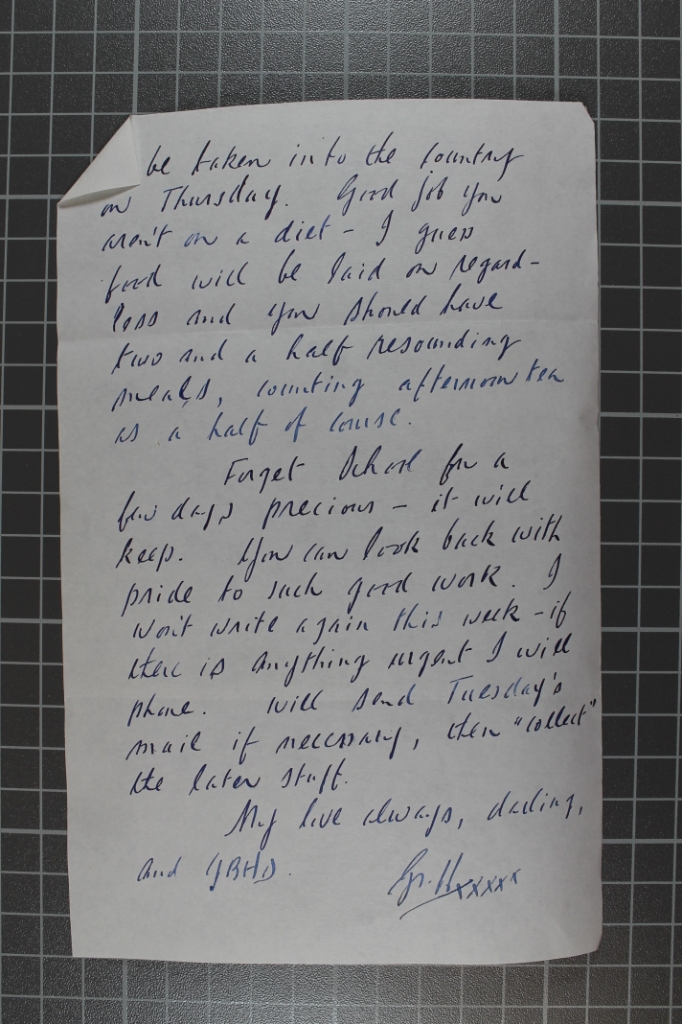 be taken into the country
on Thursday. Good job you
aren't on a diet - I guess
food will be laid on regard-
less and you should have
two and a half resounding
meals, counting afternoon tea
as a half of course.
Forget School for a
few days precious - it will
keep. You can look back with
pride to such good work. I
won't write again this week - if
there is anything urgent I will
phone. Will send Tuesday's
mail if necessary, then "collect"
the later stuff.
My love always, darling,
and GBHD.
xxxxx